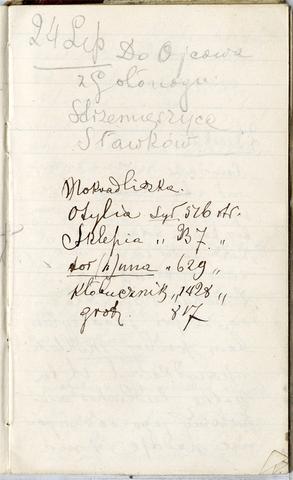 24 Lip Do Ojcowa
z Gołonogu
Strzemieszyce
Sławków
Mokradliszka.
Otylia sył. 516 str.
Sklepia „ 937 „
„ 629 „
Kłobucznik „ 1428 „
grot. 817